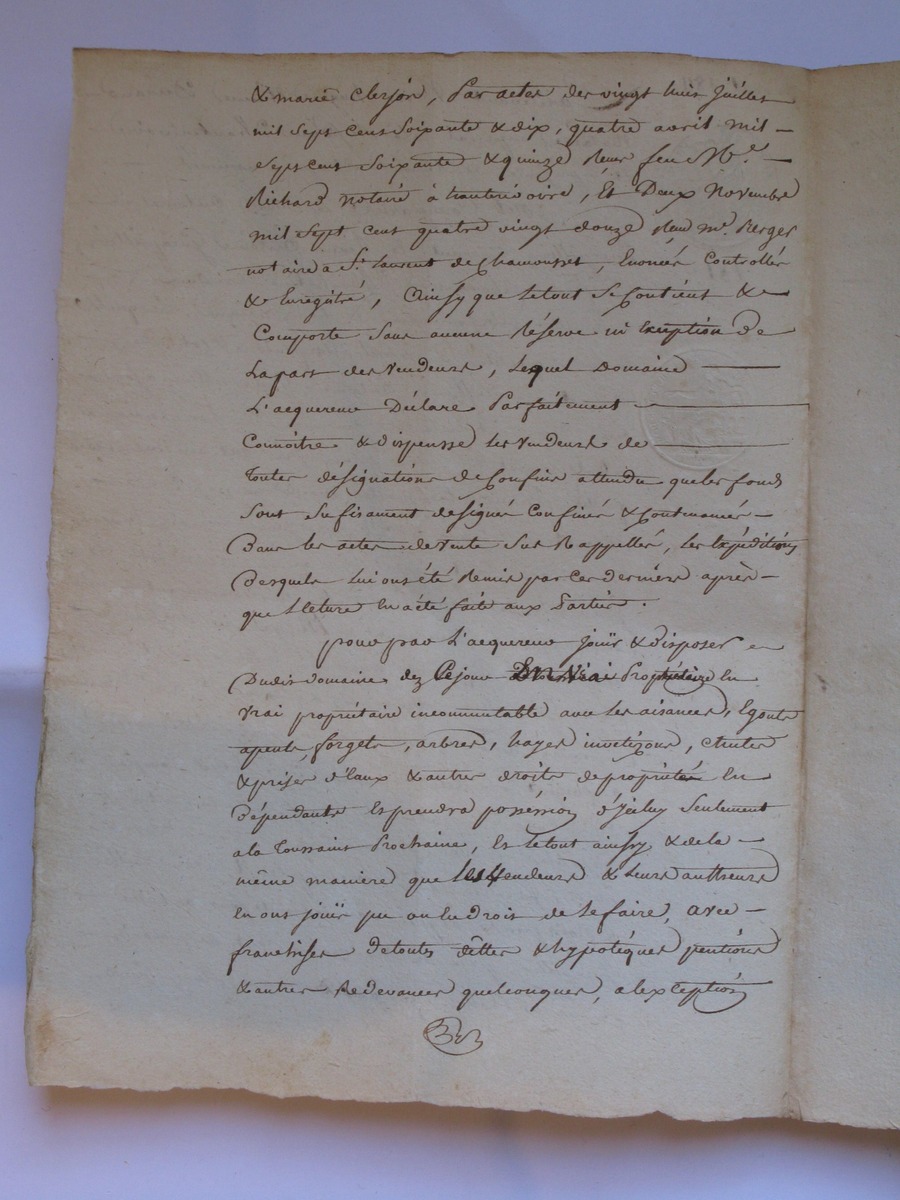 & marie Clerjon, Par actes des vingt huit juillet
mil sept cens soixante & dix, quatre avril mil –
sept cens soixante & quinze Reçus feu Me. –
Richard notaire à hauterivoire, Et Deux Novembre
mil sept cent quatre vingt douze Reçu me. Berger
notaire a St. laurent de Chamousset, Enoncés Controllés
& Enregitré, Ainsy que le tout se Contient &
Comporte sans aucune Réserve ni Exeption de
La part des Vendeurs, Lequel Domaine
L'acquereur Déclare Parfaitement
Connoitre & dispensse les vendeurs de
Toutes désignations de Confins attendu que les fonds
sont sufisament désignés Confinés & Contenancés –
Dans les actes de vente sus Rappellés, les Expéditions
Desquels lui ont été Remis par ces derniers après –
que lleture En a été faite aux Parties.
pour par L'acquereur joüir & disposer
Dudit domaine dez Ce jour En Vrai Propriétaire En
vrai propriétaire incommutable avec les aisances, Egouts
apents, forgets, arbres, hayes invetizons, chutes
& prises d'Eaux & autres droits de propriétés En
dépendants Et prendra posséssion d'Iceluy seulement
a la Toussaint Prochaine, Et le tout ainssy & de la –
même maniere que les Vendeurs & leurs autheurs
En ont joüir pu ou eu droit de le faire, avec –
franchises de toutes dêttes & hypotéques pentions
& autres Redevances quelconques, a lexception